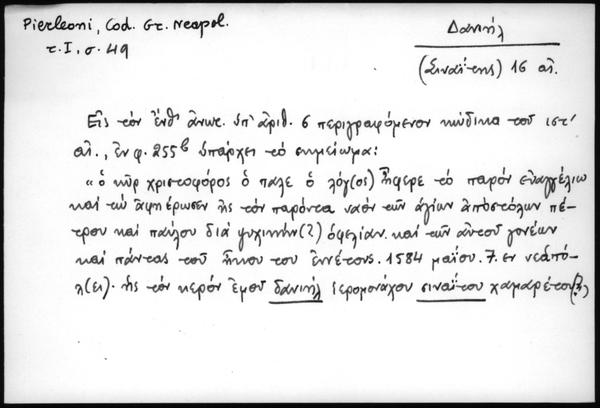 Pierleoni, Cod. Gr. Neapol.
τ. Ι, σ. 49
Δανιήλ
(Σιναΐτης) 16 αἰ.
Εἰς τὸν ἔνθ' ἄνωτ. ὑπ' ἀριθ. 6 περιγραφόμενον κώδικα τοῦ ιστ'
αἰ., ἐν φ. 255b ὑπάρχει τὸ σημείωμα:
« ὁ κῦρ χριστοφόρος ὁ παλε ὁ λόγ(ος) ἤφερε τὸ παρὸν εὐαγγέλιω
καὶ τὼ ἀφηέρωσεν ἠς τὸν παρόντα ναὸν τῶν ἁγίων ἀποστόλων πέ-
τρου καὶ παύλου διὰ ψυχικὴν(?) ὀφελίαν. καὶ τῶν αὐτοῦ γονέων
καὶ πάντας τοῦ ἤκου του ἐννέτους. 1584 μαΐου. 7. εν νεαπό-
λ(ει). ἠς τὸν κερὸν ἐμοῦ δανιήλ ἱερομονάχου σιναΐτου χαμαρέτου(?)